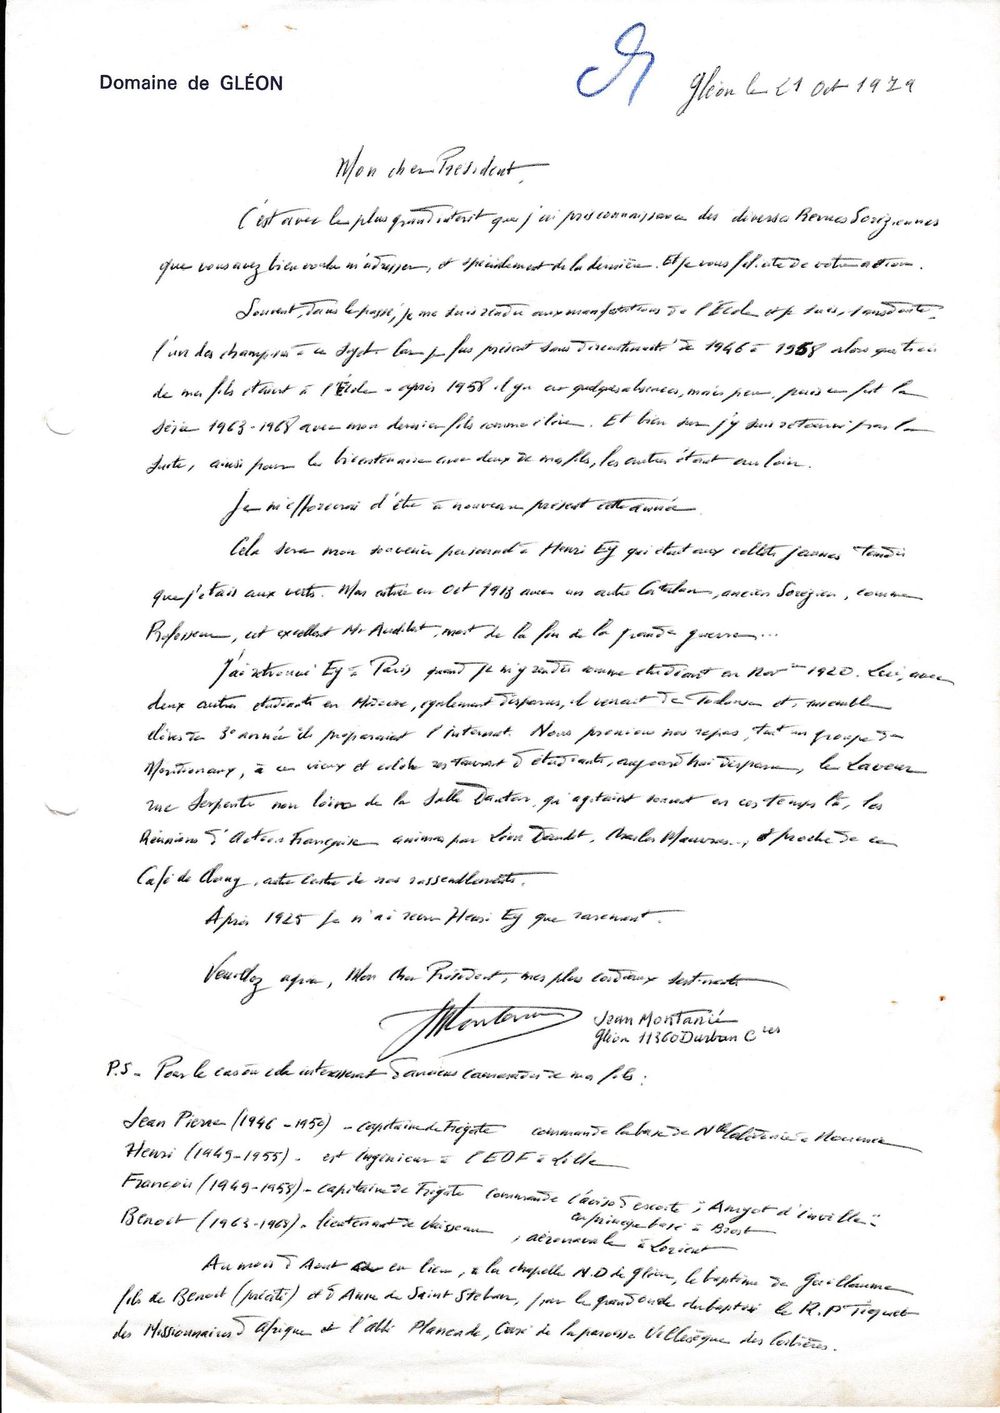 Domaine de GLÉON
Gléon le 21 Oct 1979
Mon cher Président,
C'est avec le plus grand intérêt que j'ai pris connaissance des diverses Revues Soréziennes
que vous avez bien voulu m'adresser, et spécialement de la dernière. Et je vous félicite de votre action.
Souvent, dans le passé, je me suis rendu aux manifestations de l'École et je suis, sans doute,
l'un des champions à ce sujet car je fus présent sans discontinuité de 1946 à 1958 alors que trois
de mes fils étaient à l'École - après 1958 il y a eu quelques absences, mais peu, puis ce fut la
série 1963-1968 avec mon dernier fils comme élève. Et bien sûr j'y suis retourné par la
suite, ainsi pour le bicentenaire avec deux de mes fils, les autres étant au loin.
Je m'efforcerai d'être à nouveau présent cette année.
Cela sera mon souvenir personnel à Henri Ey qui était aux collets jaunes tandis
que j'étais aux verts. Mon entrée en Oct 1913 avec un autre Catalan, ancien Sorézien, comme
Professeur, cet excellent Mr Audibet, mort de la fin de la grande guerre...
J'ai retrouvé Ey à Paris quand je m'y rendis comme étudiant en Novre 1920. Lui, avec
deux autres étudiants en Médecine, également disparus, il venait de Toulouse et, ensemble
élèves de 3e année ils préparaient l'internat. Nous prenions nos repas, tout un groupe de
Méridionaux, à ce vieux et célèbre restaurant d'étudiants, aujourd'hui disparu, le Laveur
rue Serpente non loin de la Salle Danton, qu'agitaient souvent en ces temps là, les
Réunions d'Action Française animées par Léon Daudet, Charles Maurras.., et proche de ce
Café de Cluny, autre centre de nos rassemblements.
Après 1925 je n'ai revu Henri Ey que rarement.
Veuillez agréer, Mon cher Président, mes plus cordiaux sentiments
Jean Montanié
Gléon 11360 Durban Cres
P.S - Pour le cas où cela intéresserait d'anciens camarades de mes fils :
Jean Pierre (1946-1950) - capitaine de Frégate commande la base de Nlle Calédonie à Nouméa
Henri (1949-1955) - est Ingénieur à l'EDF à Lille
François (1949-1958) - capitaine de Frégate commande l'aviso d'escorte "Amyot d'Inville"
en principe basé à Brest
Benoit (1963-1968) - lieutenant de Vaisseau, aéronavale à Lorient
Au mois d'Aout eu lieu, à la chapelle N.D de Gléon, le baptême de Guillaume
fils de Benoit (précité) et d'Anne de Saint Steban, par le grand oncle du baptisé le R.P
des Missionnaires d'Afrique et l'abbé Plancade, Curé de la paroisse Villesèque des Corbières.